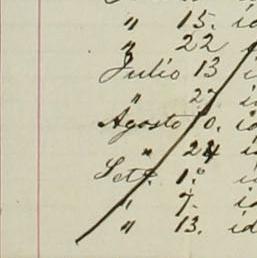 " 15. id
" 22
Julio 13 i
" 27 i
Agosto 10. id
" 24 i
Set.e 1.º i
" 7. id
" 13. id